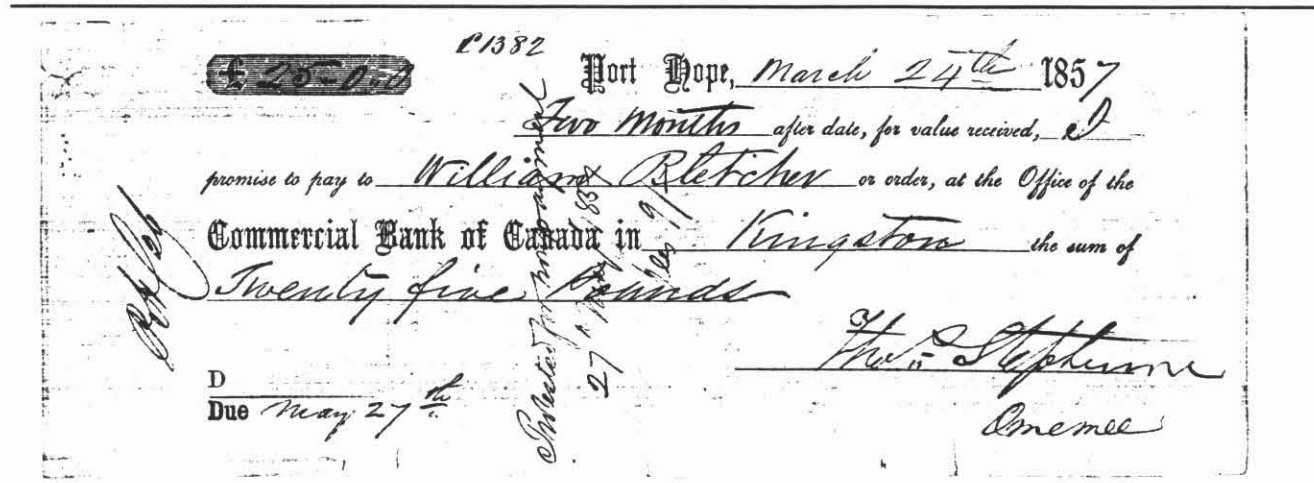 P1382
£ 25-0-0
Port Hope, March 24th 1857
Two Months after date, for value received, I
promise to pay to William Bletcher or order, at the Office of the
Commercial Bank of Canada in Kingston the sum of
Twenty five Pounds
Thos Stephenson
Omemee
D
Due May 27th
Protested for non payment
27 May 1857